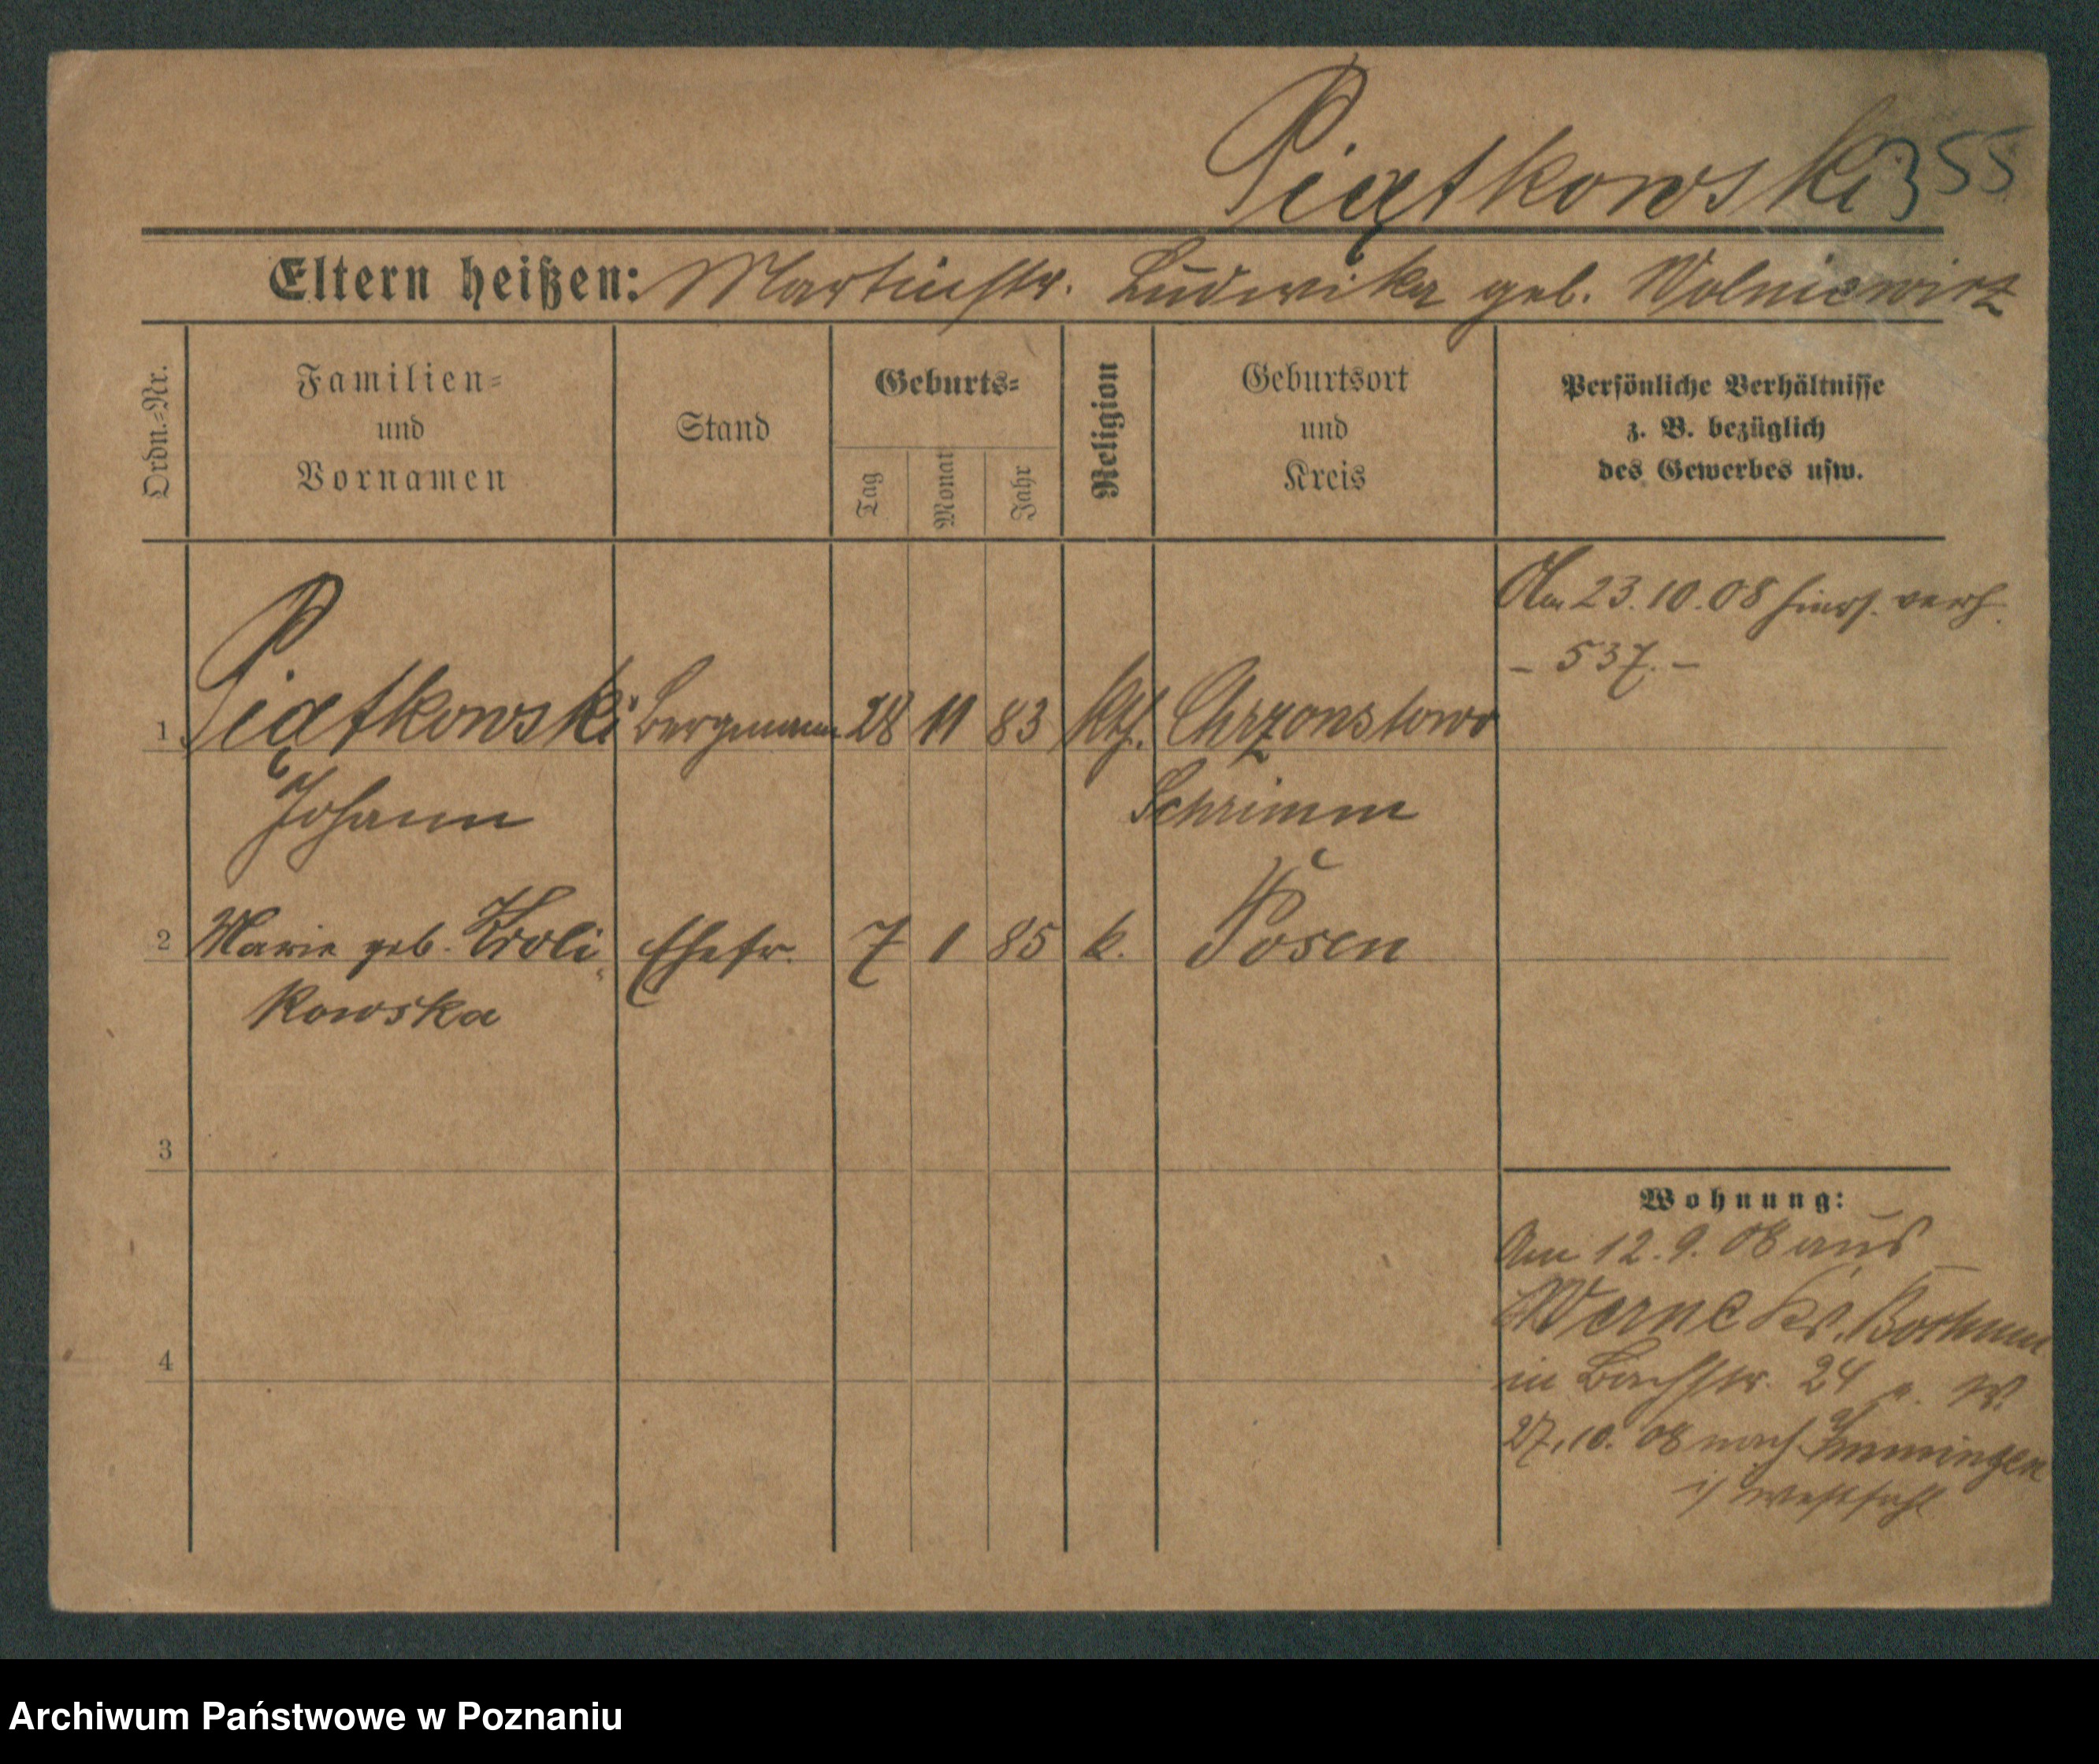 Piątkowski 355
Eltern heißen: Ludwika geb. Wolniewicz
Ordn.-Nr.
Familien-
und
Vornamen
Stand
Geburts-
Tag
Monat
Jahr
Religion
Geburtsort
und
Kreis
Persönliche Verhältnisse
z. B. bezüglich
des Gewerbes usw.
Am 23.10.08 verh.
- 537. -
1 Piątkowski Bergmann 28 11 83 kth. Chrzonstowo
Johann Schrimm
2 Marie geb. Kroli Ehefr. 7 1 85 k. Posen
kowska
3
4
Wohnung:
Am 12.9.08 aus
Werne Kr. Bochum
in Bachstr. 24
27.10.08 nach
i/ Westfahl
Archiwum Państwowe w Poznaniu